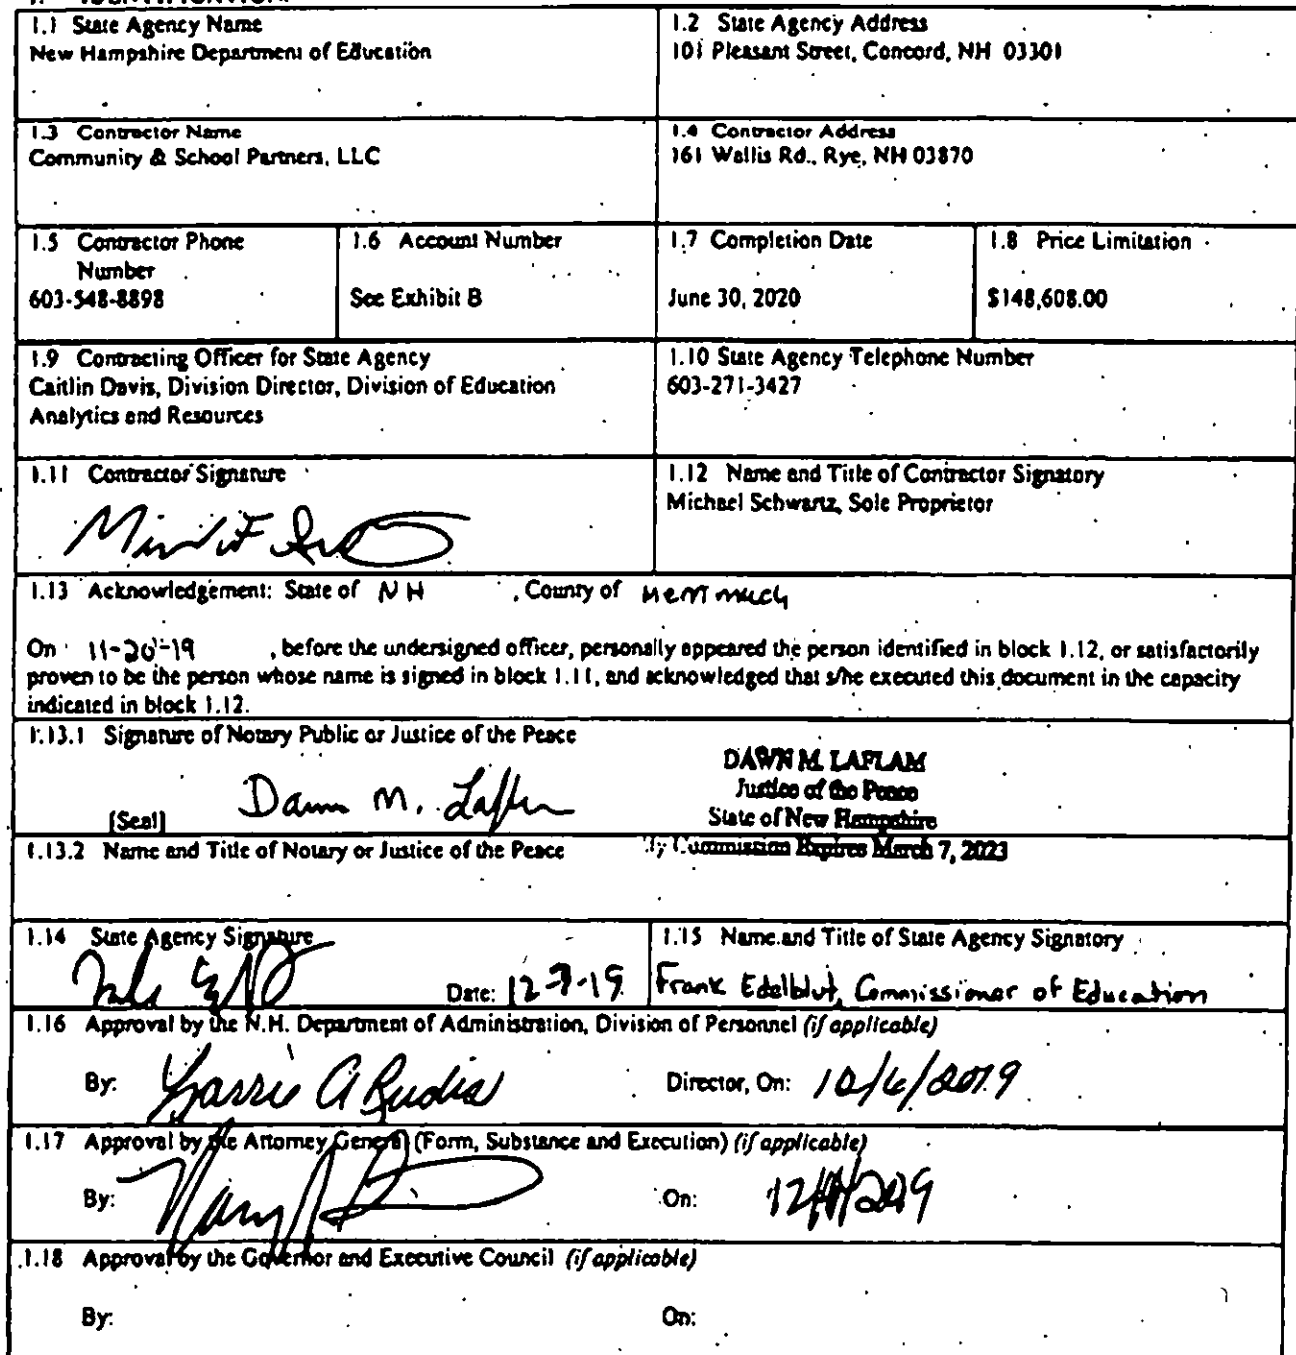 1.1 State Agency Name
New Hampshire Department of Education
1.2 State Agency Address
101 Pleasant Street, Concord, NH 03301
1.3 Contractor Name
Community & School Partners, LLC
1.4 Contractor Address
161 Wallis Rd., Rye, NH 03870
1.5 Contractor Phone
Number
603-548-8898
1.6 Account Number
See Exhibit B
1.7 Completion Date
June 30, 2020
1.8 Price Limitation
$148,608.00
1.9 Contracting Officer for State Agency
Caitlin Davis, Division Director, Division of Education
Analytics and Resources
1.10 State Agency Telephone Number
603-271-3427
1.11 Contractor Signature
1.12 Name and Title of Contractor Signatory
Michael Schwartz, Sole Proprietor
1.13 Acknowledgement: State of NH , County of Merrimack
On 11-20-19 , before the undersigned officer, personally appeared the person identified in block 1.12, or satisfactorily
proven to be the person whose name is signed in block 1.11, and acknowledged that s/he executed this document in the capacity
indicated in block 1.12.
1.13.1 Signature of Notary Public or Justice of the Peace
Dawn M. Laflam
[Seal]
DAWN M. LAFLAM
Justice of the Peace
State of New Hampshire
My Commission Expires March 7, 2023
1.13.2 Name and Title of Notary or Justice of the Peace
1.14 State Agency Signature
Date: 12-9-19
1.15 Name and Title of State Agency Signatory
Frank Edelblut, Commissioner of Education
1.16 Approval by the N.H. Department of Administration, Division of Personnel (if applicable)
By:
Director, On: 12/6/2019
1.17 Approval by the Attorney General (Form, Substance and Execution) (if applicable)
By:
On:
1.18 Approval by the Governor and Executive Council (if applicable)
By:
On: